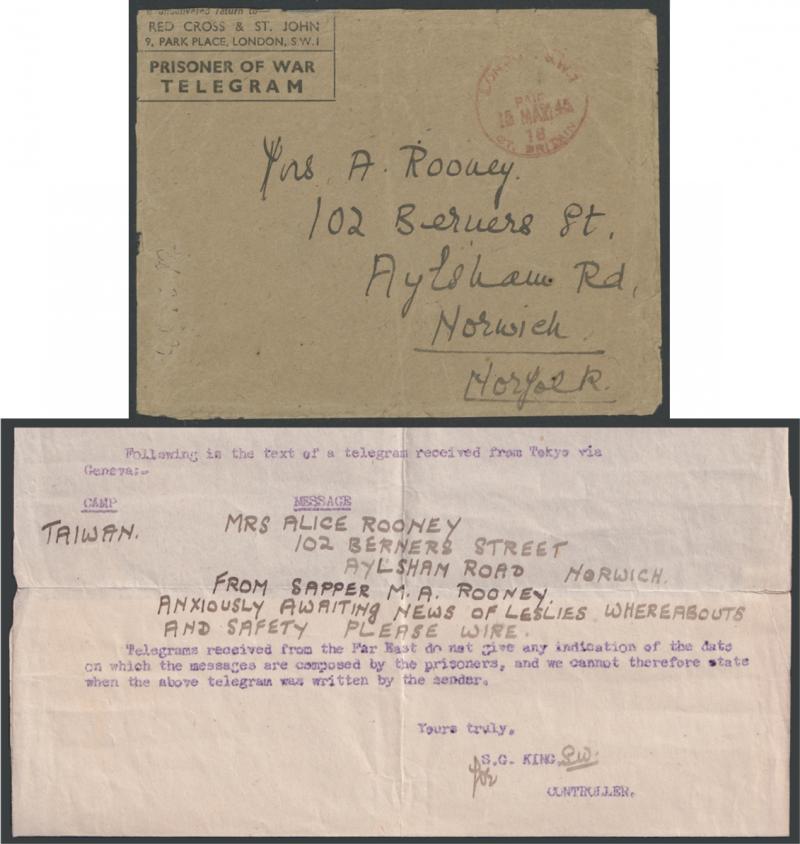 undelivered return to—
RED CROSS & ST. JOHN
9, PARK PLACE, LONDON, S.W.1
PRISONER OF WAR
TELEGRAM
LONDON S.W.1
PAID
MAY 45
18
GT. BRITAIN
Mrs A. Rooney.
102 Berners St,
Aylsham Rd,
Norwich.
Norfolk.
Following is the text of a telegram received from Tokyo via
Geneva:-
CAMP MESSAGE
TAIWAN. MRS ALICE ROONEY
102 BERNERS STREET
AYLSHAM ROAD NORWICH.
FROM SAPPER M.A. ROONEY.
ANXIOUSLY AWAITING NEWS OF LESLIES WHEREABOUTS
AND SAFETY PLEASE WIRE.
Telegrams received from the Far East do not give any indication of the date
on which the messages are composed by the prisoners, and we cannot therefore state
when the above telegram was written by the sender.
Yours truly,
S.G. KING
for
CONTROLLER.